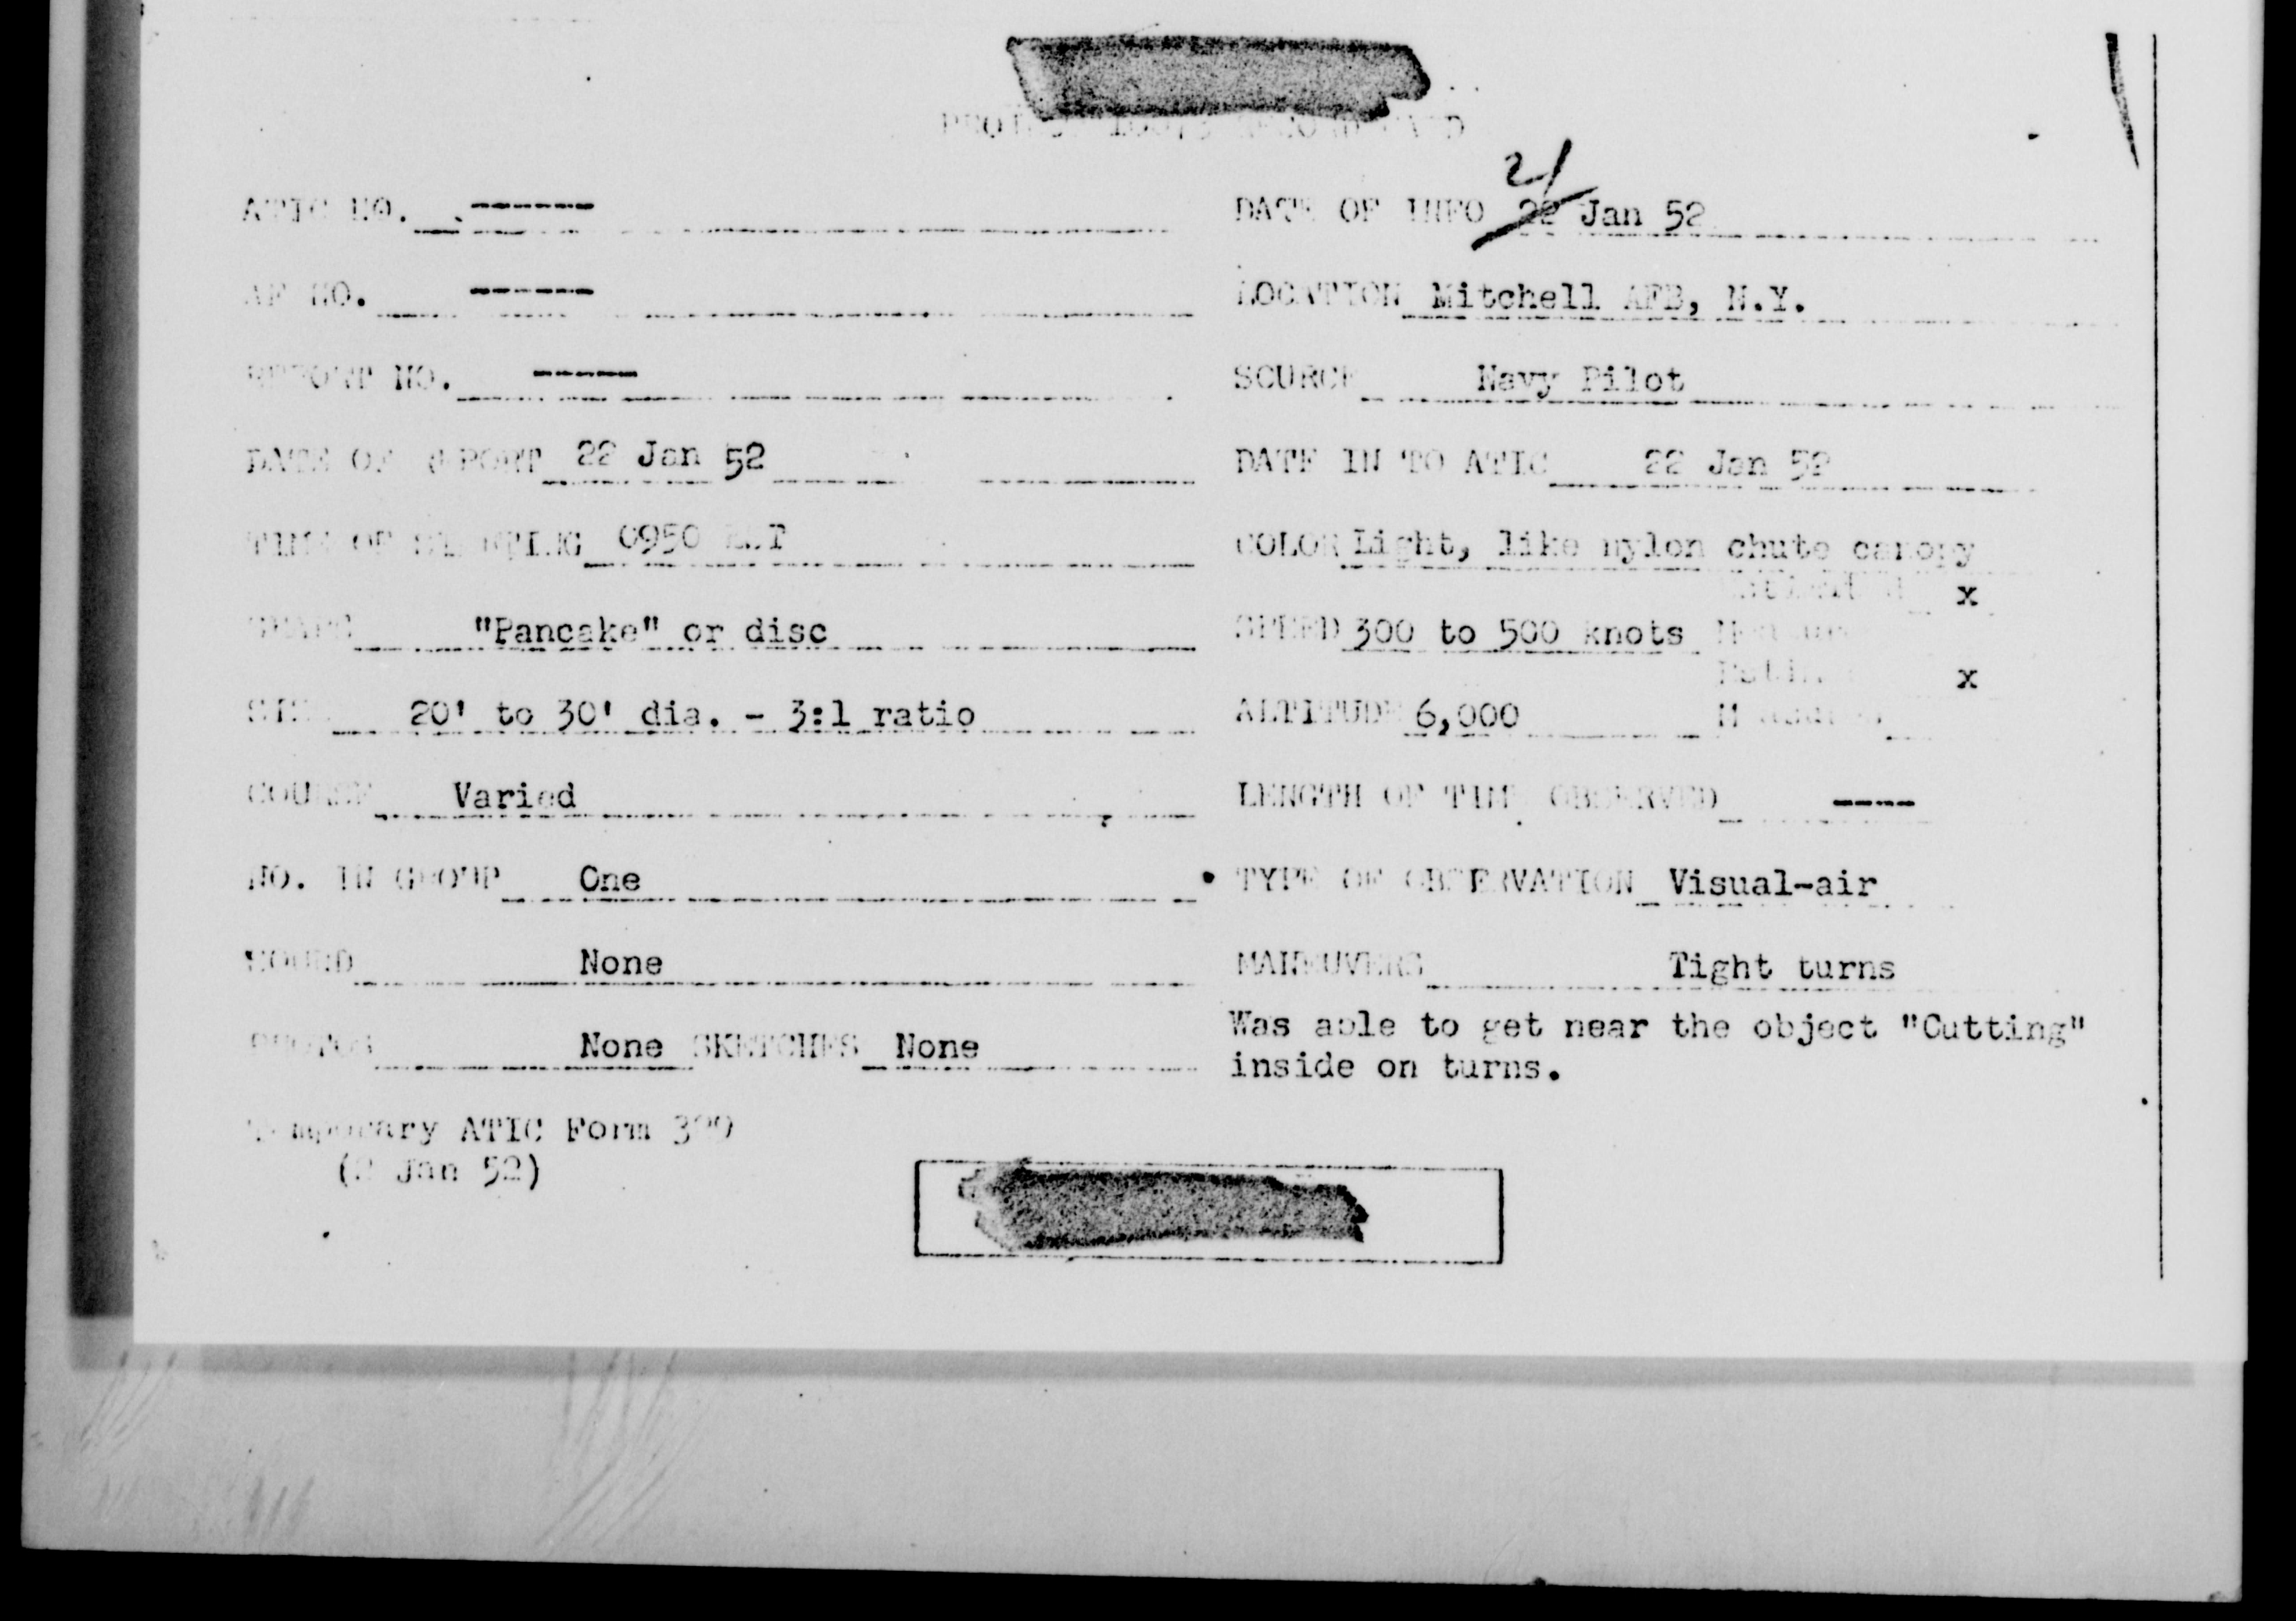 ATIC NO. ------
DATE OF INFO 22 21 Jan 52
AF NO. ------
LOCATION Mitchell AFB, N.Y.
REPORT NO. -----
SOURCE Navy Pilot
DATE OF REPORT 22 Jan 52
DATE IN TO ATIC 22 Jan 52
TIME OF SIGHTING 0950 EST
COLOR Light, like nylon chute canopy
SHAPE "Pancake" or disc
Estimated x
SPEED 300 to 500 knots Measured
SIZE 20' to 30' dia. - 3:1 ratio
x
ALTITUDE 6,000 Measured
COURSE Varied
LENGTH OF TIME OBSERVED ----
NO. IN GROUP One
TYPE OF OBSERVATION Visual-air
SOUND None
MANEUVERS Tight turns
PHOTOS None SKETCHES None
Was able to get near the object "Cutting"
inside on turns.
Temporary ATIC Form
Jan 52)